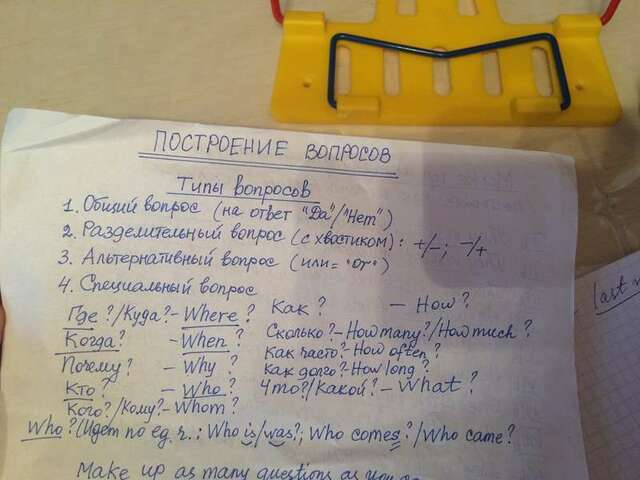 ПОСТРОЕНИЕ ВОПРОСОВ
Типы вопросов
1. Общий вопрос (на ответ "Да"/"Нет")
2. Разделительный вопрос (с хвостиком): +/-; -/+
3. Альтернативный вопрос (или = "or")
4. Специальный вопрос
Где?/Куда? - Where? Как? - How?
Когда? - When? Сколько? - How many?/How much?
Почему? - Why? Как часто? - How often?
Как долго? - How long?
Кто? - Who? Что?/Какой? - What?
Кого?/Кому? - Whom?
Who? (Идет по ед. ч.; Who is/was?; Who comes?/Who came?
Make up as many questions as you
last